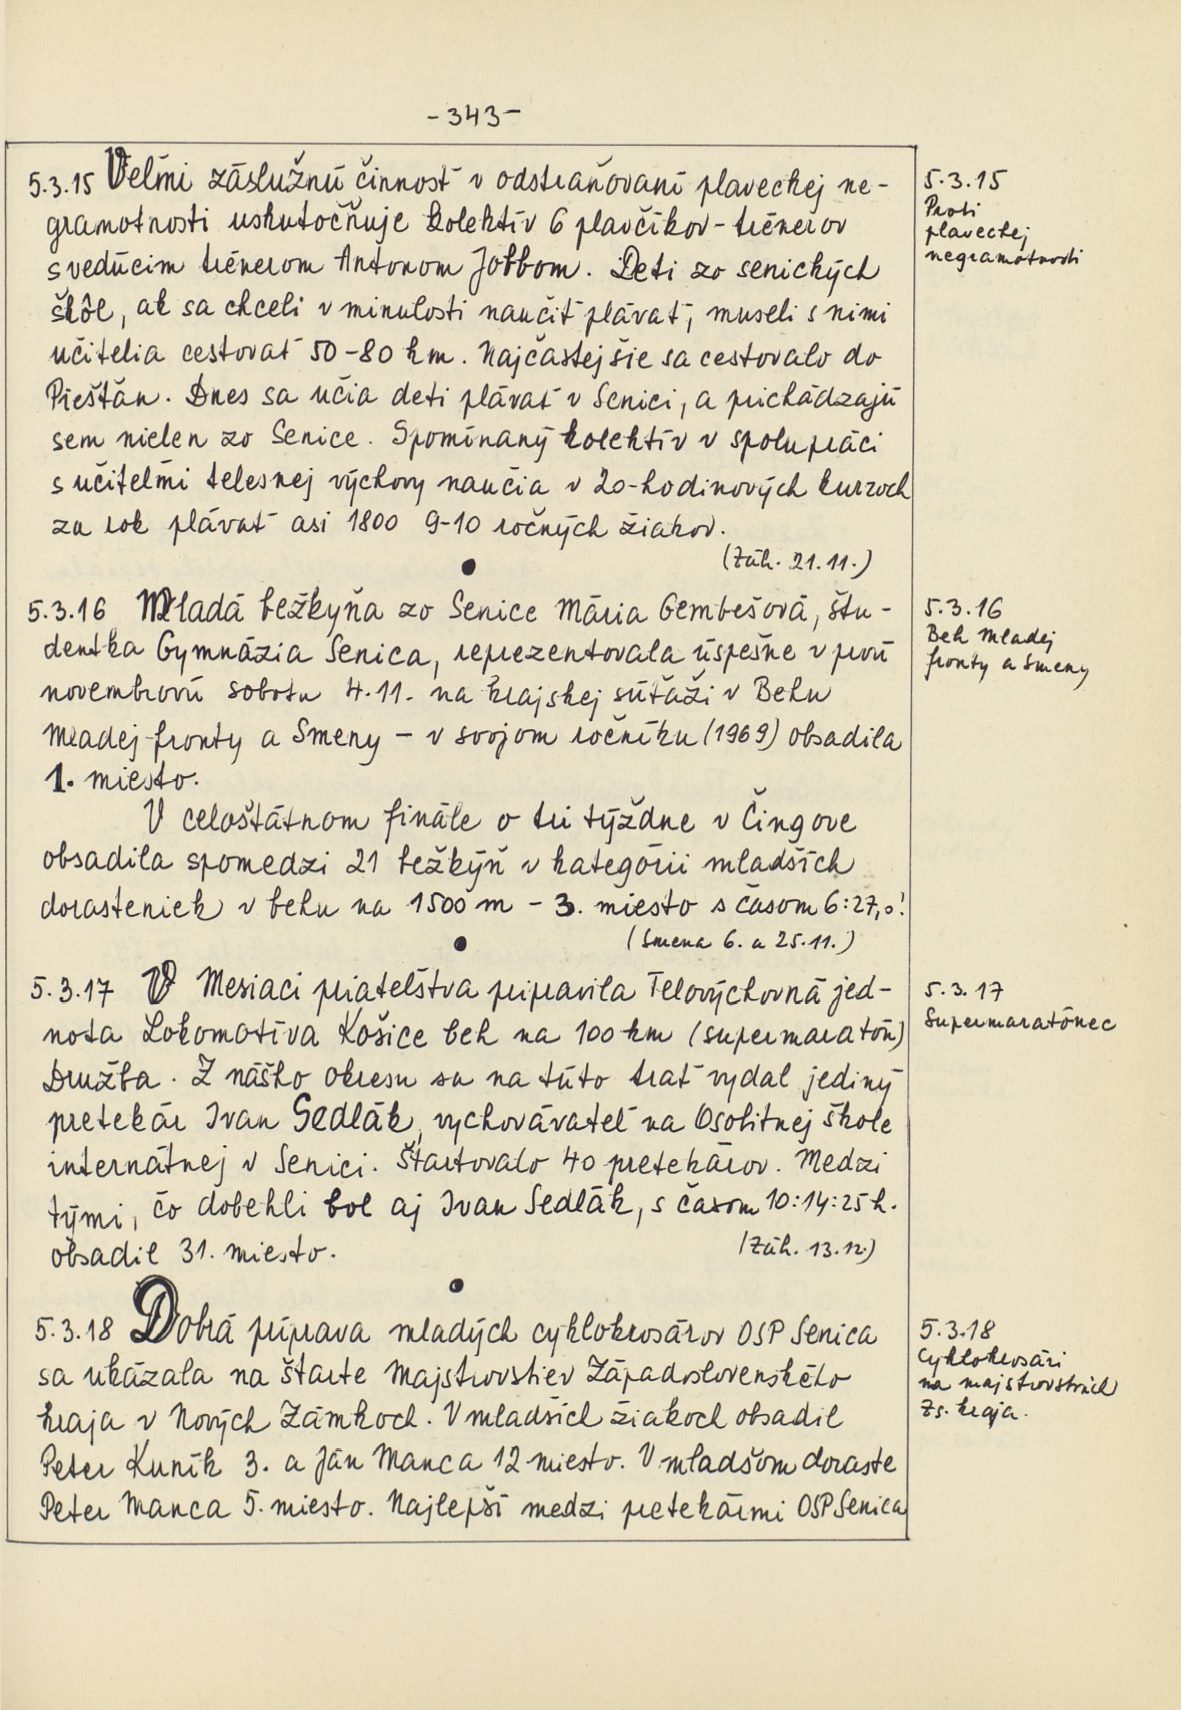 -343-
5.3.15 Veľmi záslužnú činnosť v odstraňovaní plaveckej ne-
gramotnosti uskutočňuje kolektív 6 plavčíkov-trénerov
s vedúcim trénerom Antonom Jobbom. Deti zo senických
škôl, ak sa chceli v minulosti naučiť plávať, museli s nimi
učitelia cestovať 50-80 km. Najčastejšie sa cestovalo do
Piešťan. Dnes sa učia deti plávať v Senici, a prichádzajú
sem nielen zo Senice. Spomínaný kolektív v spolupráci
s učiteľmi telesnej výchovy naučia v 20-hodinových kurzoch
za rok plávať asi 1800 9-10 ročných žiakov.
(Záh. 21.11.)
5.3.16 Mladá bežkyňa zo Senice Mária Gembešová, štu-
dentka Gymnázia Senica, reprezentovala úspešne v prvú
novembrovú sobotu 4.11. na krajskej súťaži v Behu
Mladej fronty a Smeny - v svojom ročníku (1969) obsadila
1. miesto.
V celoštátnom finále o tri týždne v Čingove
obsadila spomedzi 21 bežkýň v kategórii mladších
dorasteniek v behu na 1500 m - 3. miesto s časom 6:27,0!
(Smena 6. a 25.11.)
5.3.17 V Mesiaci priateľstva pripravila Telovýchovná jed-
nota Lokomotíva Košice beh na 100 km (supermaratón)
Družba. Z nášho okresu sa na túto trať vydal jediný
pretekár Ivan Sedlák, vychovávateľ na Osobitnej škole
internátnej v Senici. Štartovalo 40 pretekárov. Medzi
tými, čo dobehli bol aj Ivan Sedlák, s časom 10:14:25 h.
obsadil 31. miesto.
(Záh. 13.12.)
5.3.18 Dobrá príprava mladých cyklokrosárov OSP Senica
sa ukázala na štarte Majstrovstiev Západoslovenského
kraja v Nových Zámkoch. V mladších žiakoch obsadil
Peter Kuník 3. a Ján Manca 12 miesto. V mladšom doraste
Peter Manca 5. miesto. Najlepší medzi pretekármi OSP Senica
5.3.15
Proti
plaveckej
negramotnosti
5.3.16
Beh Mladej
fronty a Smeny
5.3.17
Supermaratónec
5.3.18
Cyklokrosári
na majstrovstvách
Zs. kraja.